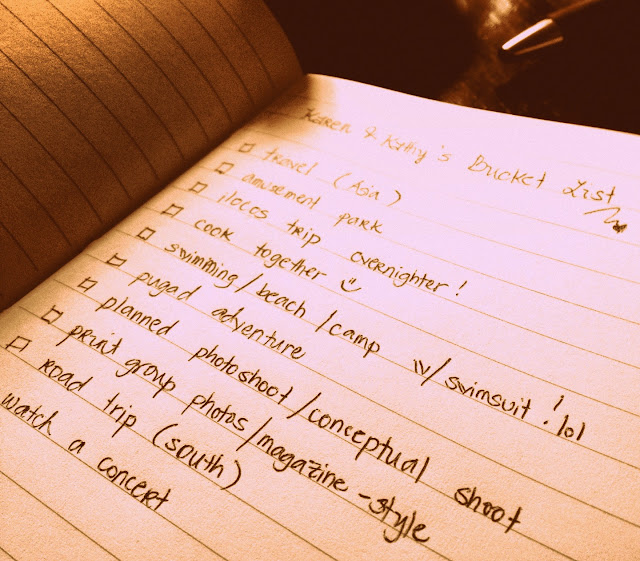 Karen & Kathy's Bucket List
travel (Asia)
amusement park
ilocos trip overnighter!
cook together
swimming/beach/camp w/swimsuit! lol
pugad adventure
planned photoshoot/conceptual shoot
print group photos/magazine-style
road trip (south)
watch a concert